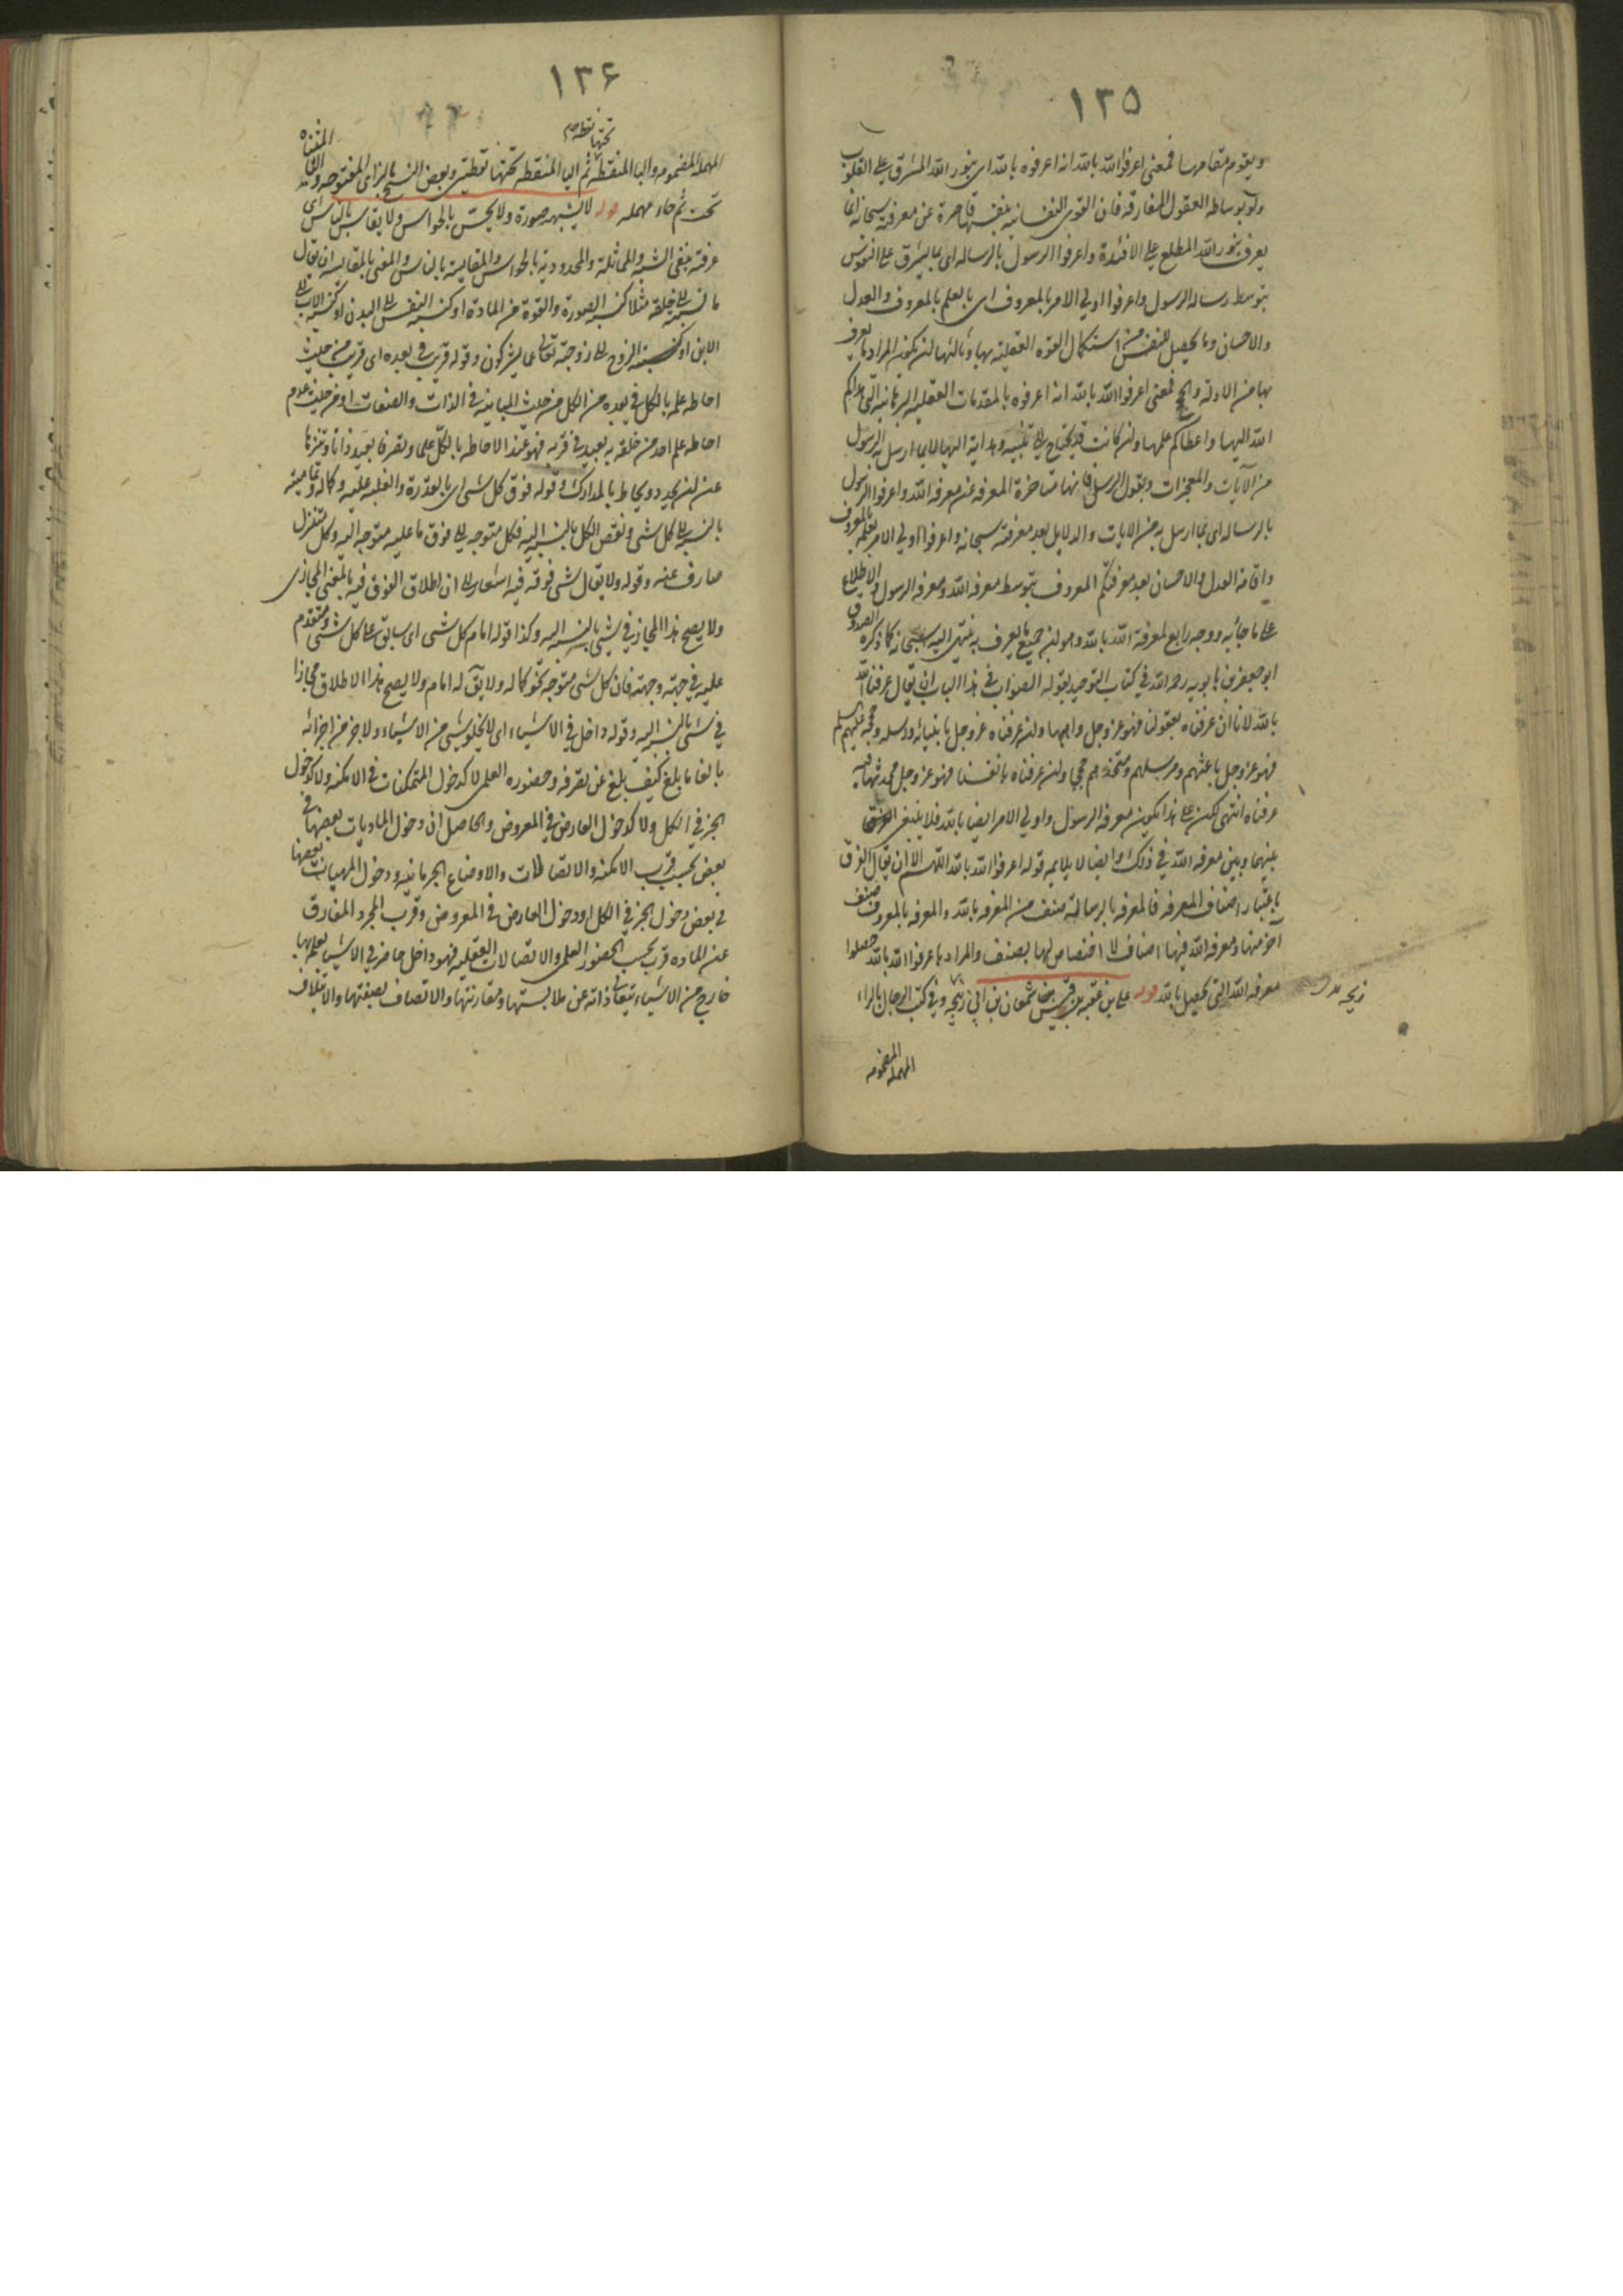 ١٣٥
ويقوم مقامها فمعنى اعرفوا الله بالله انه اعرفوه بالله اى بنور الله المشرق على القلوب
ولو بوساطه العقول المفارقه فان القوى النفسانيه بنفسها قاصرة عن معرفته سبحانه انما
يعرف بنور الله المطلع على الافئدة واعرفوا الرسول بالرساله اى بما يشرق على النفوس
بتوسط رساله الرسول واعرفوا اولي الامر بالمعروف اى بالعلم بالمعروف والعدل
والاحسان وما يحصل للنفس من استكمال القوه العقليه بها وثالثها ان يكون المراد ما يعرف
بها من الادلة والحجج فمعنى اعرفوا الله بالله انه اعرفوه بالمقدمات العقليه البرهانيه التى هداكم
الله اليها واعطاكم علمها وان كانت قد يحتاج الى تنبيه وهداية اليها لا بما ارسل به الرسول
من الآيات والمعجزات وبقول الرسل فانها متاخرة المعرفه عن معرفه الله واعرفوا الرسول
بالرساله اى بما ارسل به من الايات والدلايل بعد معرفته سبحانه واعرفوا اولي الامر بعلمه بالمعروف
واقامة العدل والاحسان بعد معرفتكم المعروف بتوسط معرفه الله ومعرفه الرسول والاطلاع
على ما جاء به ووجه رابع لمعرفة الله بالله وهو ان جميع ما يعرف به ينتهى اليه سبحانه كما ذكره الصدوق
ابو جعفر بن بابويه رحمه الله في كتاب التوحيد بقوله الصواب في هذا الباب ان يقال عرفنا الله
بالله لانا ان عرفناه بعقولنا فهو عز وجل واهبها وان عرفناه عز وجل بانبيائه ورسله وحججه عليهم السلم
فهو عز وجل باعثهم ومرسلهم ومتخذهم حججا وان عرفناه بانفسنا فهو عز وجل محدثها فبه
عرفناه انتهى لكن على هذا يكون معرفه الرسول واولي الامر ايضا بالله فلا ينبغي الفرق
بينهما وبين معرفه الله في ذلك وايضا لا يلايمه قوله اعرفوا الله بالله اللهم الا ان يقال الفرق
باعتبار اصناف المعرفه فالمعرفه بالرسالة صنف من المعرفه بالله والمعرفه بالمعروف صنف
آخر منها ومعرفه الله فيها اصناف لا اختصاص لها بصنف والمراد باعرفوا الله بالله حصلوا
معرفه الله التى تحصل بالله قوله على بن عقبه بن قيس بن شمعان بن ابي زبيحه وفي كتب الرجال بالراء
زبيحه
المهمله المضمومه
١٣۶
تحتها نقطه
المهمله المضمومه والباء المنقطه ثم الياء المنقطه تحتها نقطتين وبعض النسخ بالزاى المفتوحه والياء المثناه
تحت ثم حاء مهمله قوله لا يشبهه صورة ولا يحس بالحواس ولا يقاس بالناس اى
عرفته بنفى الشبه والمماثلة والمحدودية بالحواس والمقايسة بالناس والمعنى بالمقايسه ان يقال
ما نسبته الى خلقه مثلا كنسبه الصورة والقوة من المادة او كنسبه النفس الى البدن او كنسبه الاب الى
الابن او كنسبة الزوج الى زوجته تعالى عما يشركون وقوله قريب في بعده اى قريب من حيث
احاطه علمه بالكل في بعده من الكل من حيث المباينه في الذات والصفات او من حيث عدم
احاطه علم احد من خلقه به بعيد في قربه فهو عند الاحاطه بالكل علما وتصرفا بعيد ذاتا وتنزها
عن ان يحد ويحاط بالمدارك وقوله فوق كل شى اى بالقدرة والغلبه عليه وكماله وتماميته
بالنسبه الى كل شى ونقص الكل بالنسبه اليه فكل متوجه الى فوق ما عليه متوجه اليه وكل متنزل
صارف عنه وقوله ولا يقال شى فوقه فيه اشعار الى ان اطلاق الفوق فيه بالمعنى المجازى
ولا يصح هذا المجاز في شى بالنسبه اليه وكذا قوله امام كل شى اى سابق على كل شى ومتقدم
عليه في جهته وجهته فان كل شى متوجه نحو كماله ولا يق له امام ولا يصح هذا الاطلاق مجازا
في شى بالنسبه اليه وقوله داخل في الاشياء اى لا يخلو شى من الاشياء ولا جزء من اجزائه
بالغا ما بلغ كيف بلغ عن تصرفه وحضوره العلمى لا كدخول المتمكنات في الامكنه ولا كدخول
الجزء في الكل ولا كدخول العارض في المعروض والحاصل ان دخول الماديات بعضها في
بعض بحسب قرب الامكنه والاتصالات والاوضاع الجرمانيه ودخول المهيات بعضها
في بعض دخول الجزء في الكل او دخول العارض في المعروض وقرب المجرد المفارق
عن الماده قرب بحسب الحضور العلمى والاتصالات العقليه فهو داخل حاضر في الاشياء بعلمه بها
خارج من الاشياء بتعالى ذاته عن ملابستها ومقارنتها والاتصاف بصفتها والائتلاف